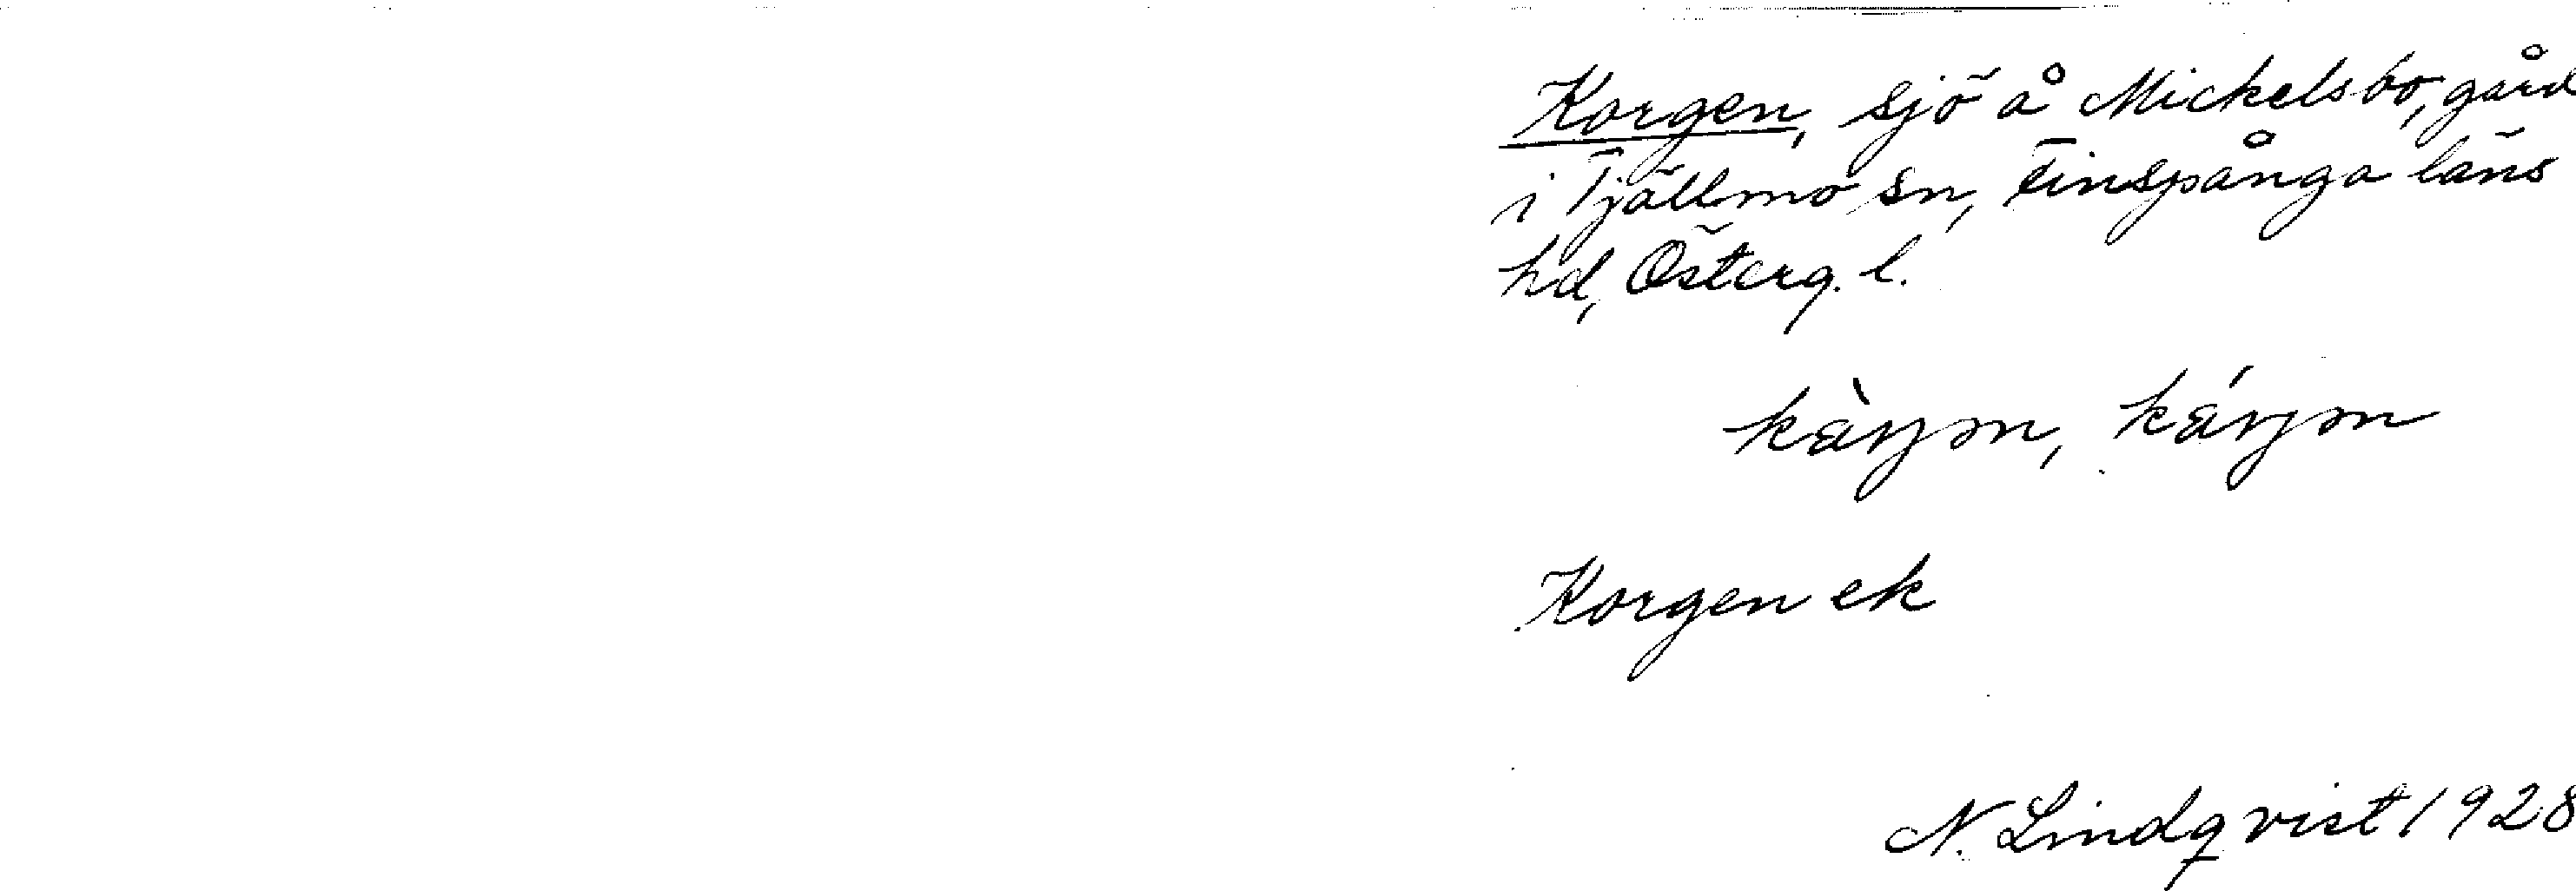 Korgen, sjö å Mickelsbo, gård
i Tjällmo sn, Finspånga läns
hd, Österg. l.
Korgen ek
N. Lindqvist 1928